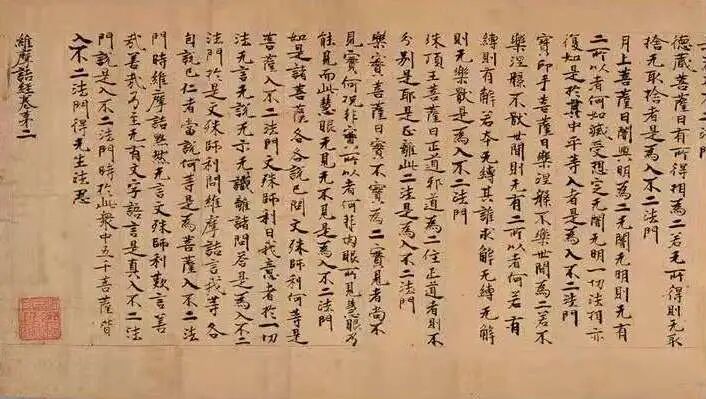 德藏菩薩曰有所得相為二若无所得則无取
捨无取捨者是為入不二法門
月上菩薩曰闇與明為二无闇无明則无有
二所以者何如滅受想定无闇无明一切法相亦
復如是於其中平等入者是為入不二法門
寶印手菩薩曰樂涅槃不樂世間為二若不
樂涅槃不猒世間則无有二所以者何若有
縛則有解若本无縛其誰求解无縛无解
則无樂猒是為入不二法門
珠頂王菩薩曰正道邪道為二住正道者則不
分別是耶是正離此二法是為入不二法門
樂實菩薩曰實不實為二實見者尚不
見實何況非實所以者何非肉眼所見慧眼乃
能見而此慧眼无見无不見是為入不二法門
如是諸菩薩各各說已問文殊師利何等是
菩薩入不二法門文殊師利曰我意者於一切
法无言无說无示无識離諸問荅是為入不二
法門於是文殊師利問維摩詰言我等各
自說已仁者當說何等是為菩薩入不二法
門時維摩詰黙然无言文殊師利歎言善
哉善哉乃至无有文字語言是真入不二法
門說是入不二法門時於此衆中五千菩薩皆
入不二法門得无生法忍
維摩詰經卷第二